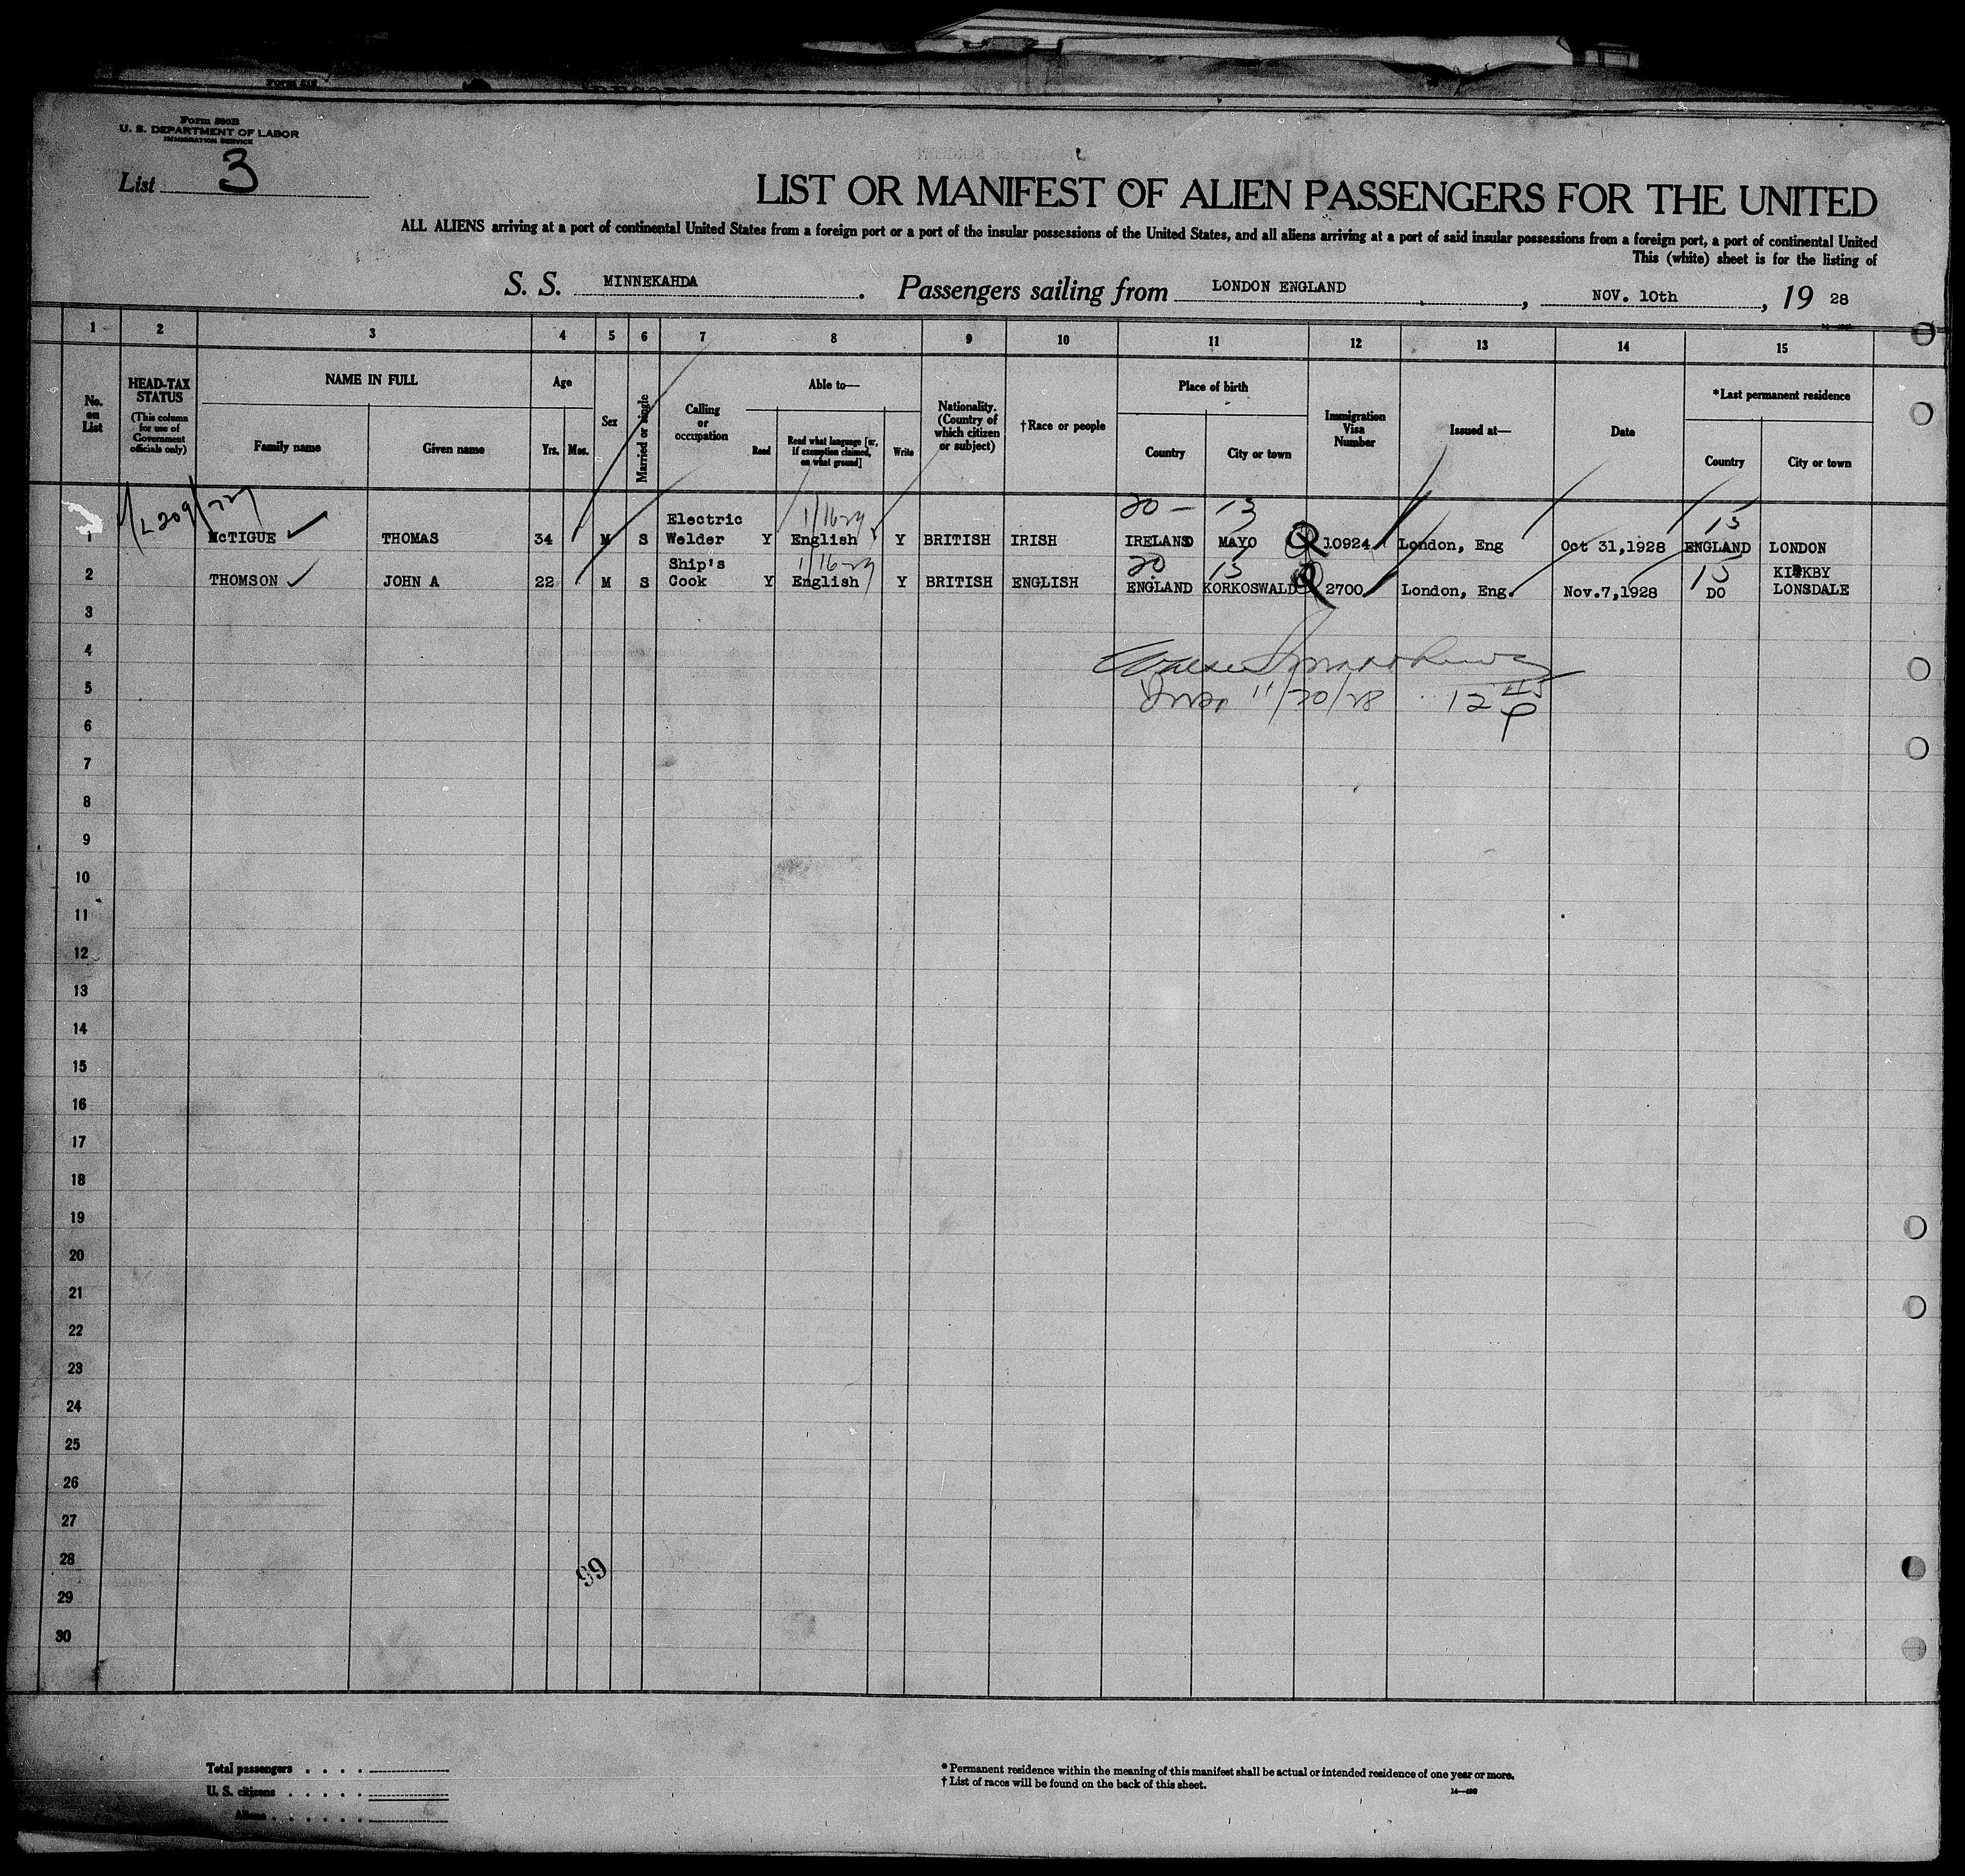 Form 500B
U. S. DEPARTMENT OF LABOR
IMMIGRATION SERVICE
List 3
LIST OR MANIFEST OF ALIEN PASSENGERS FOR THE UNITED
ALL ALIENS arriving at a port of continental United States from a foreign port or a port of the insular possessions of the United States, and all aliens arriving at a port of said insular possessions from a foreign port, a port of continental United
This (white) sheet is for the listing of
S. S. MINNEKAHDA. Passengers sailing from LONDON ENGLAND, NOV. 10th, 19 28
1 2 3 4 5 6 7 8 9 10 11 12 13 14 15
No. on List
HEAD-TAX STATUS
(This column for use of Government officials only)
NAME IN FULL
Family name
Given name
Age
Yrs. Mos.
Sex
Married or single
Calling or occupation
Able to—
Read
Read what language [or, if exemption claimed, on what ground]
Write
Nationality. (Country of which citizen or subject)
†Race or people
Place of birth
Country
City or town
Immigration Visa Number
Issued at—
Date
*Last permanent residence
Country
City or town
20 - 13
15
1 McTIGUE THOMAS 34 M S Electric Welder Y English Y BRITISH IRISH IRELAND MAYO 10924 London, Eng Oct 31,1928 ENGLAND LONDON
20 15
15
2 THOMSON JOHN A 22 M S Ship's Cook Y English Y BRITISH ENGLISH ENGLAND KORKOSWALD 2700 London, Eng. Nov.7,1928 DO KIRKBY LONSDALE
3
4
5
11/20/28 12 45 P
6
7
8
9
10
11
12
13
14
15
16
17
18
19
20
21
22
23
24
25
26
27
28
99
29
30
Total passengers . . . .
U. S. citizens . . . . .
Aliens . . . . . .
* Permanent residence within the meaning of this manifest shall be actual or intended residence of one year or more.
† List of races will be found on the back of this sheet.